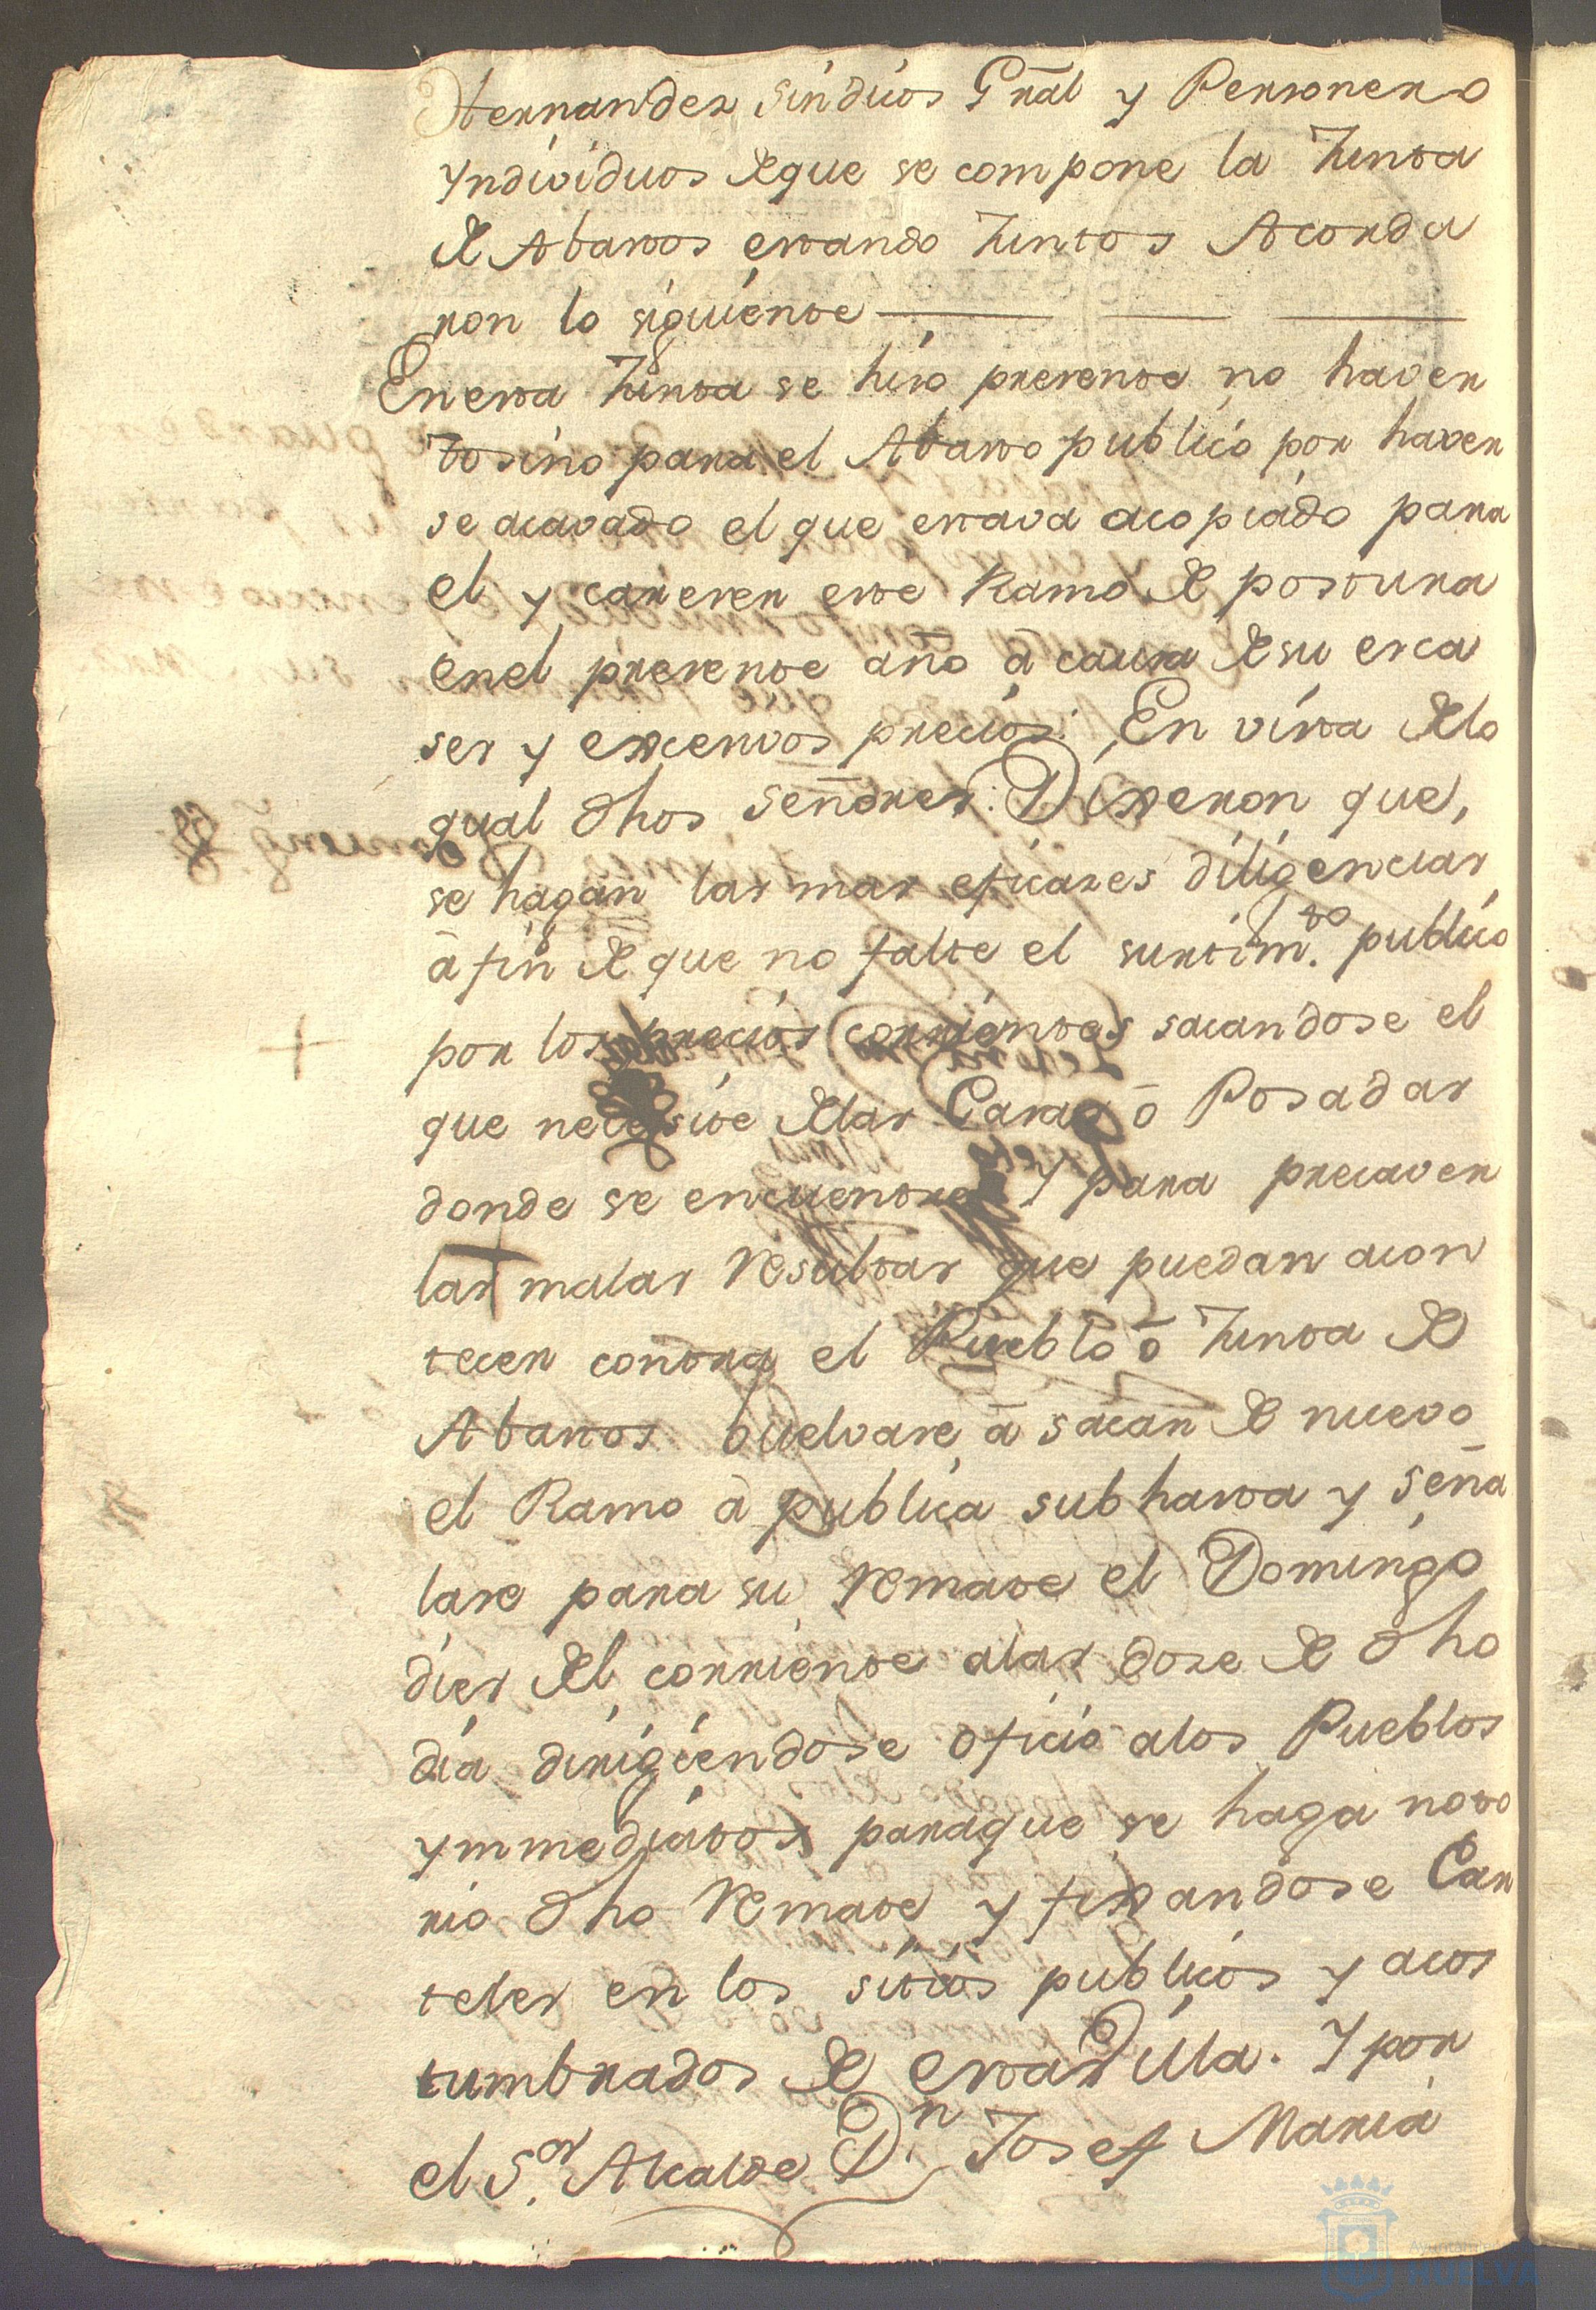 Hernandez Sindicos Gral y Personero
yndividuos de que se compone la Junta
de Abastos estando Juntos Acorda
ron lo siguiente
En esta Junta se hizo presente no haver
tosino para el Abasto publico por haver
se acavado el que estava acopiado para
el y careser este Ramo de postura
en el presente año á causa de su esca
ses y excesivos precios: En vista de lo
qual dhos Señores: Dixeron que,
se hagan las mas eficazes diligencias
á fin de que no falte el surtim.to publico
por los precios corrientes sacandose el
que necesite de las Casas ó Posadas
donde se encuentre Y para precaver
las malas resultas que puedan acon
tecer contra el Pueblo ó Junta de
Abastos buelvase á sacar de nuevo
el Ramo á publica subhasta y seña
lase para su remate el Domingo
dies del corriente a las doze de dho
dia dirigiendose oficio a los Pueblos
ymmediatos para que se haga noto
rio dho remate y fixandose Car
teles en los sitios publicos y acos
tumbrados de esta Villa. Y por
el S.or Alcalde D.n Josef Maria
Ayuntamiento
HUELVA